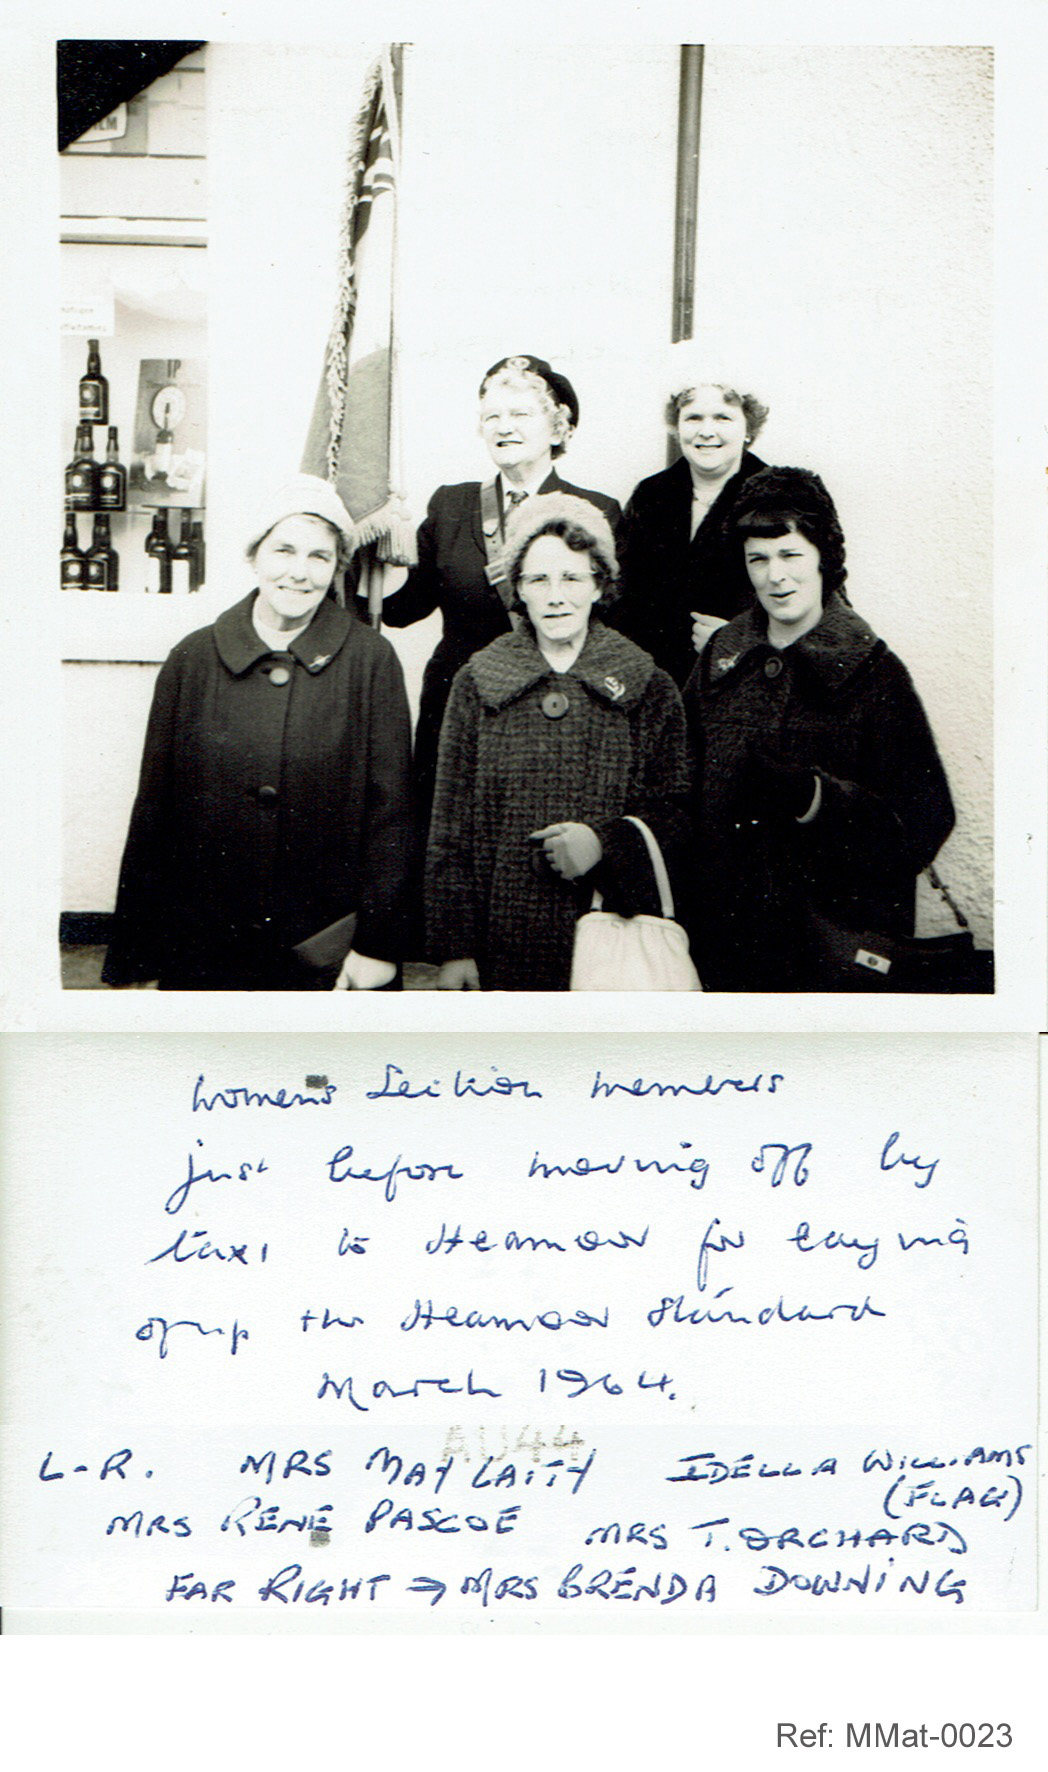 LM
IP
Women's Section members
just before moving off by
taxi to Heamoor for laying
of up the Heamoor Standard
March 1964.
AU44
L-R. MRS MAY LAITY IDELLA WILLIAMS
(FLAG)
MRS RENE PASCOE MRS T. ORCHARD
FAR RIGHT → MRS BRENDA DOWNING
Ref: MMat-0023